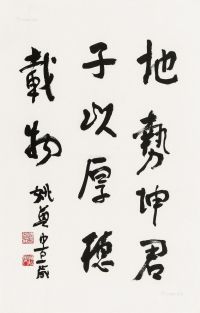 地勢坤君
子以厚德
載物
姚奠中百一歲